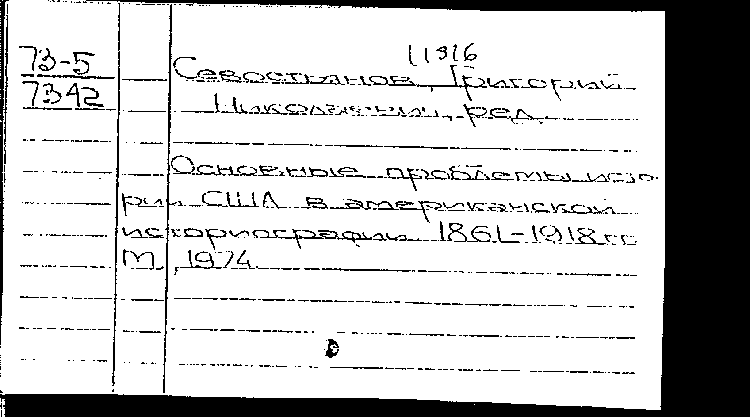 11816
73-5
7342
Севостьянов, Григорий
Николаевич, ред.
Основные проблемы исто
рии США в американской
историографии 1861-1918 гг
М., 1974